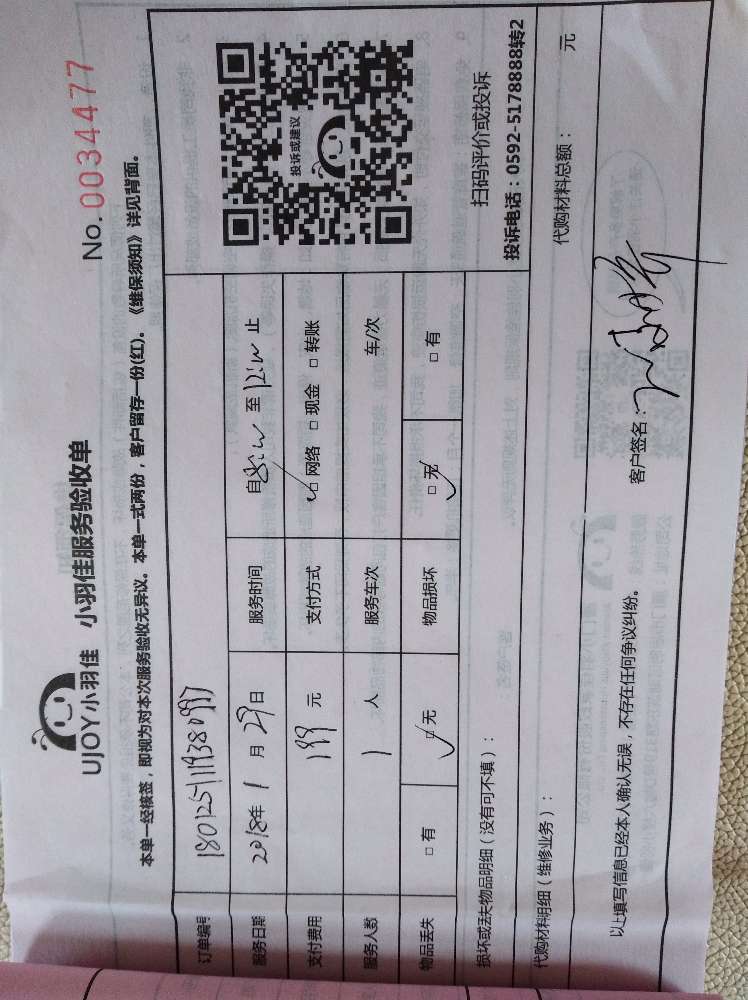 UJOY小羽佳 小羽佳服务验收单
No.0034477
本单一经核签，即视为对本次服务验收无异议。本单一式两份，客户留存一份(红)。《维保须知》详见背面。
订单编号 180125111938099
服务日期 2018年 1 月 29 日 服务时间 自 至 止
支付费用 199 元 支付方式 □ 网络 □ 现金 □ 转账
服务人数 1 人 服务车次 车/次
物品丢失 □ 有 □ 无 物品损坏 □ 无 □ 有
投诉或建议
扫码评价或投诉
投诉电话：0592-5178888转2
损坏或丢失物品明细（没有可不填）：
代购材料明细（维修业务）： 代购材料总额： 元
以上填写信息已经本人确认无误，不存在任何争议纠纷。 客户签名：